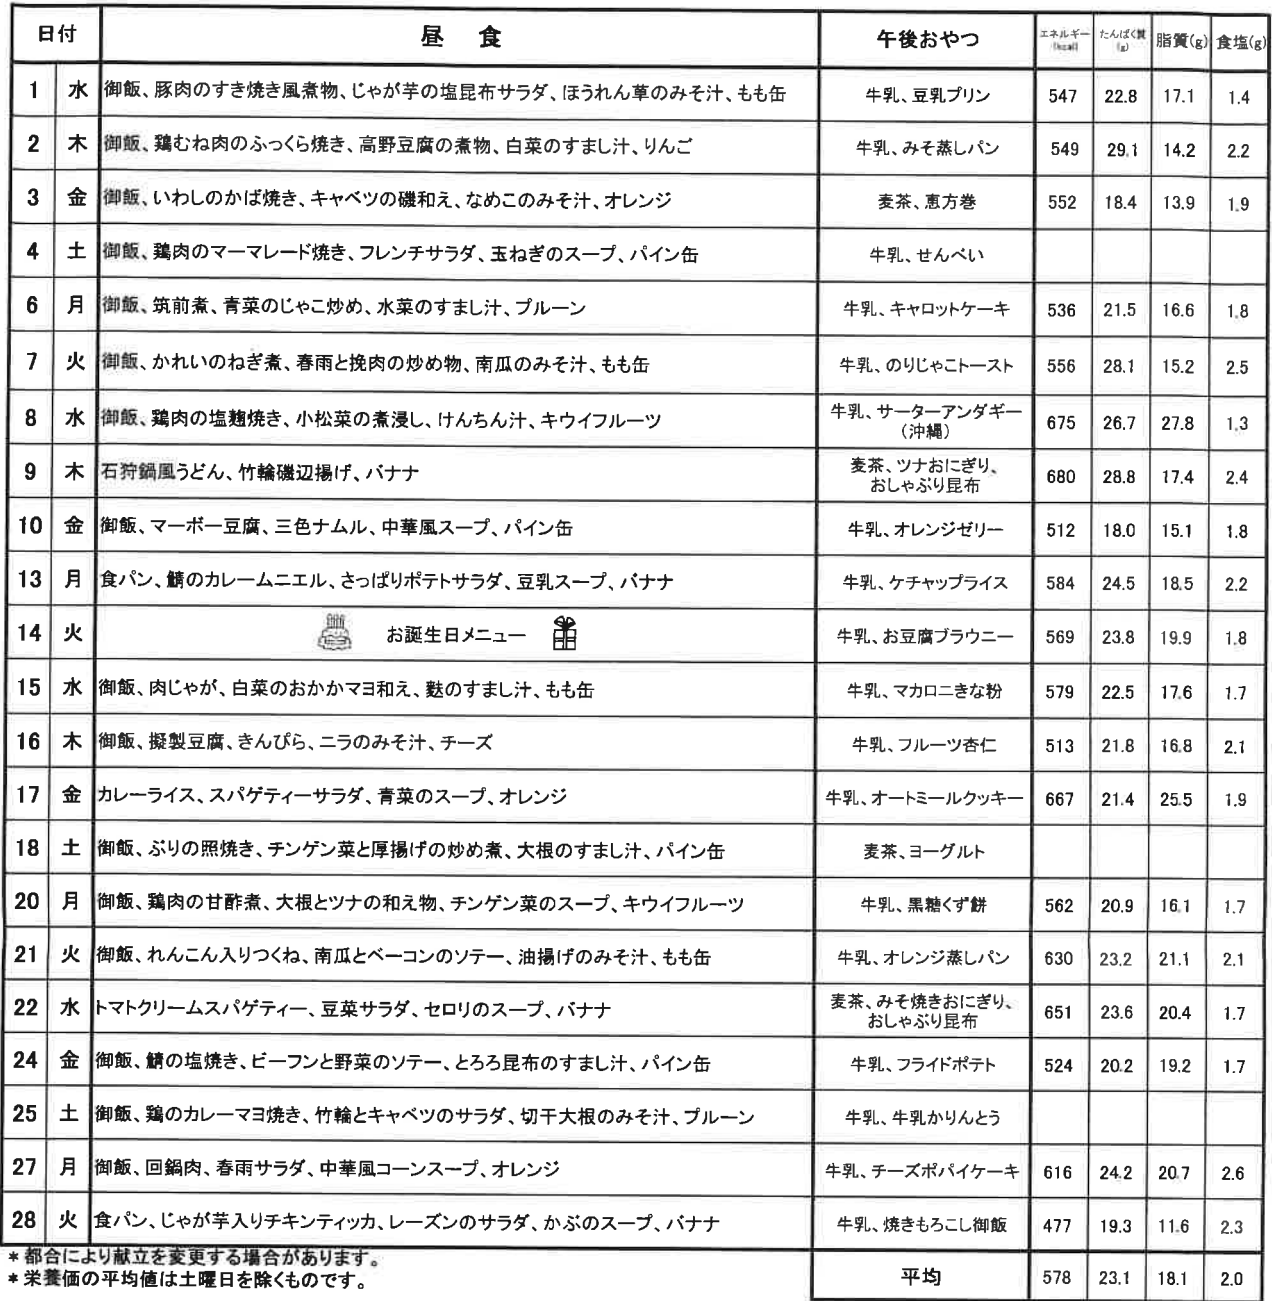 日付 昼 食 午後おやつ エネルギー(kcal) たんぱく質(g) 脂質(g) 食塩(g)
1 水 御飯、豚肉のすき焼き風煮物、じゃが芋の塩昆布サラダ、ほうれん草のみそ汁、もも缶 牛乳、豆乳プリン 547 22.8 17.1 1.4
2 木 御飯、鶏むね肉のふっくら焼き、高野豆腐の煮物、白菜のすまし汁、りんご 牛乳、みそ蒸しパン 549 29.1 14.2 2.2
3 金 御飯、いわしのかば焼き、キャベツの磯和え、なめこのみそ汁、オレンジ 麦茶、恵方巻 552 18.4 13.9 1.9
4 土 御飯、鶏肉のマーマレード焼き、フレンチサラダ、玉ねぎのスープ、パイン缶 牛乳、せんべい
6 月 御飯、筑前煮、青菜のじゃこ炒め、水菜のすまし汁、プルーン 牛乳、キャロットケーキ 536 21.5 16.6 1.8
7 火 御飯、かれいのねぎ煮、春雨と挽肉の炒め物、南瓜のみそ汁、もも缶 牛乳、のりじゃこトースト 556 28.1 15.2 2.5
8 水 御飯、鶏肉の塩麹焼き、小松菜の煮浸し、けんちん汁、キウイフルーツ 牛乳、サーターアンダギー
(沖縄) 675 26.7 27.8 1.3
9 木 石狩鍋風うどん、竹輪磯辺揚げ、バナナ 麦茶、ツナおにぎり、
おしゃぶり昆布 680 28.8 17.4 2.4
10 金 御飯、マーボー豆腐、三色ナムル、中華風スープ、パイン缶 牛乳、オレンジゼリー 512 18.0 15.1 1.8
13 月 食パン、鯖のカレームニエル、さっぱりポテトサラダ、豆乳スープ、バナナ 牛乳、ケチャップライス 584 24.5 18.5 2.2
14 火 お誕生日メニュー 牛乳、お豆腐ブラウニー 569 23.8 19.9 1.8
15 水 御飯、肉じゃが、白菜のおかかマヨ和え、麩のすまし汁、もも缶 牛乳、マカロニきな粉 579 22.5 17.6 1.7
16 木 御飯、擬製豆腐、きんぴら、ニラのみそ汁、チーズ 牛乳、フルーツ杏仁 513 21.8 16.8 2.1
17 金 カレーライス、スパゲティーサラダ、青菜のスープ、オレンジ 牛乳、オートミールクッキー 667 21.4 25.5 1.9
18 土 御飯、ぶりの照焼き、チンゲン菜と厚揚げの炒め煮、大根のすまし汁、パイン缶 麦茶、ヨーグルト
20 月 御飯、鶏肉の甘酢煮、大根とツナの和え物、チンゲン菜のスープ、キウイフルーツ 牛乳、黒糖くず餅 562 20.9 16.1 1.7
21 火 御飯、れんこん入りつくね、南瓜とベーコンのソテー、油揚げのみそ汁、もも缶 牛乳、オレンジ蒸しパン 630 23.2 21.1 2.1
22 水 トマトクリームスパゲティー、豆菜サラダ、セロリのスープ、バナナ 麦茶、みそ焼きおにぎり、
おしゃぶり昆布 651 23.6 20.4 1.7
24 金 御飯、鯖の塩焼き、ビーフンと野菜のソテー、とろろ昆布のすまし汁、パイン缶 牛乳、フライドポテト 524 20.2 19.2 1.7
25 土 御飯、鶏のカレーマヨ焼き、竹輪とキャベツのサラダ、切干大根のみそ汁、プルーン 牛乳、牛乳かりんとう
27 月 御飯、回鍋肉、春雨サラダ、中華風コーンスープ、オレンジ 牛乳、チーズポパイケーキ 616 24.2 20.7 2.6
28 火 食パン、じゃが芋入りチキンティッカ、レーズンのサラダ、かぶのスープ、バナナ 牛乳、焼きもろこし御飯 477 19.3 11.6 2.3
*都合により献立を変更する場合があります。
*栄養価の平均値は土曜日を除くものです。
平均 578 23.1 18.1 2.0